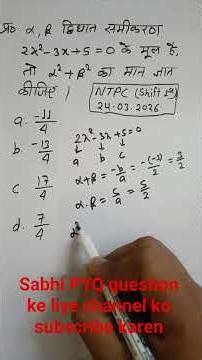 प्र० α, β द्विघात समीकरण
2x²-3x+5=0 के मूल हैं,
तो α²+β² का मान ज्ञात
कीजिए।
NTPC (Shift 1st)
24.03.2026
a. -11/4
b. -13/4
c 17/4
d. 7/4
2x²-3x+5=0
a b c
α+β = -b/a = -(-3)/2 = 3/2
α.β = c/a = 5/2
α²
Sabhi PYQ question
ke liye channel ko
subscribe karen